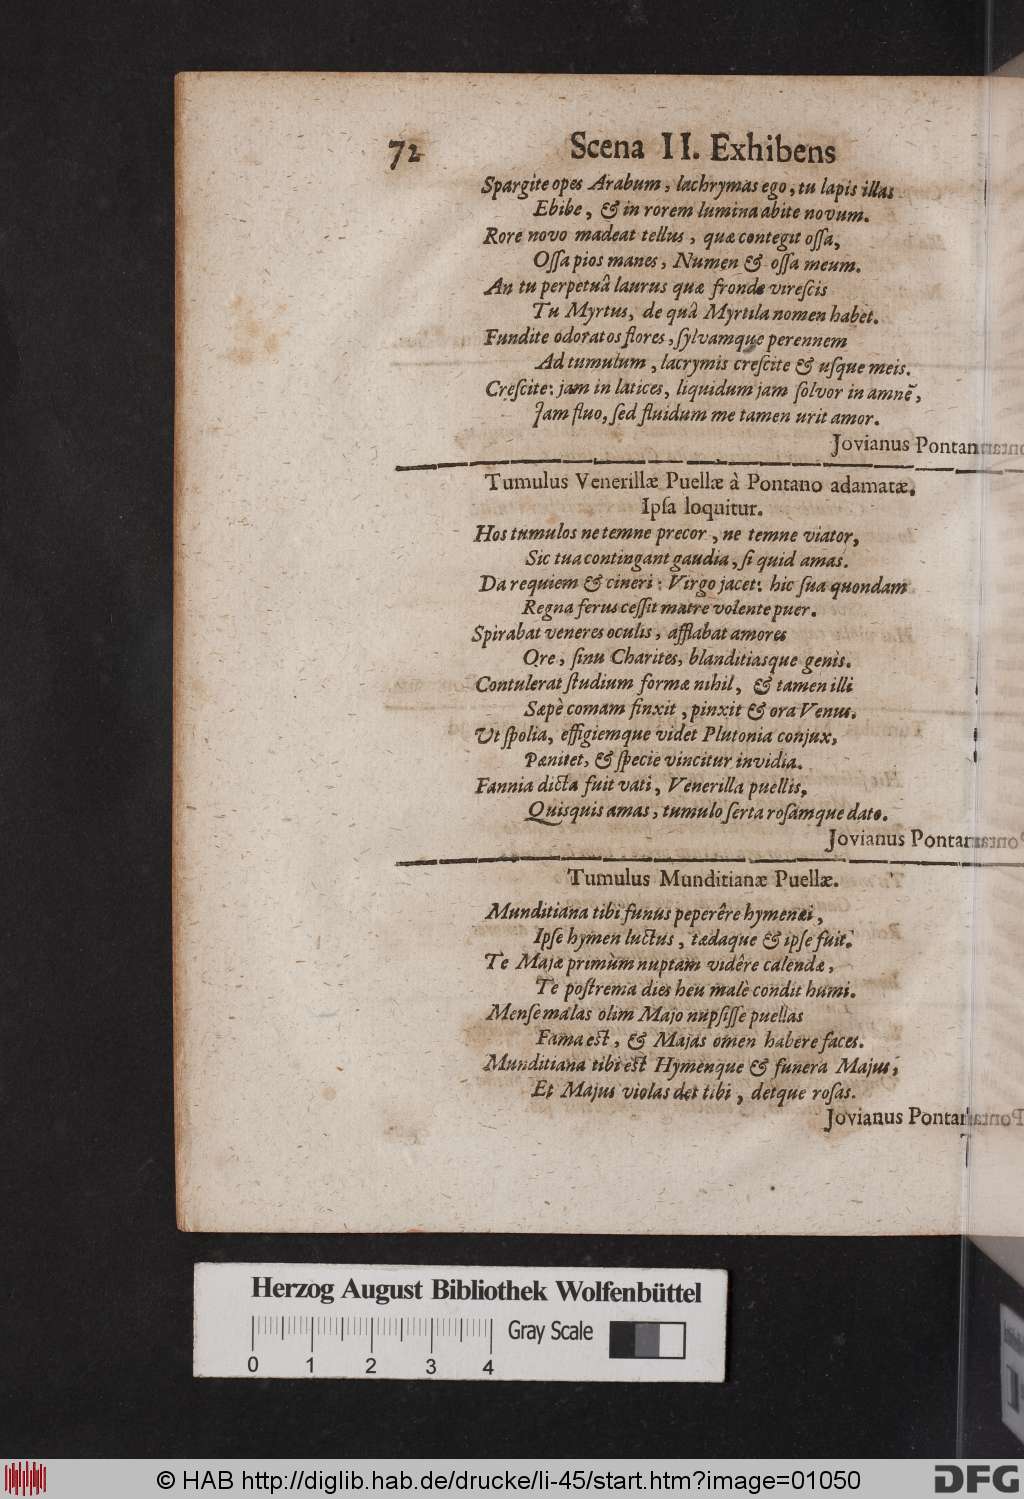 72 Scena II. Exhibens
Spargite opes Arabum, lachrymas ego, tu lapis illas
Ebibe, & in rorem lumina abite novum.
Rore novo madeat tellus, quæ contegit oſſa,
Oſſa pios manes, Numen & oſſa meum.
An tu perpetuâ laurus quæ fronde vireſcis
Tu Myrtus, de quâ Myrtila nomen habet.
Fundite odoratos flores, ſylvamque perennem
Ad tumulum, lacrymis creſcite & uſque meis.
Creſcite: jam in latices, liquidum jam ſolvor in amnē,
Jam fluo, ſed fluidum me tamen urit amor.
Jovianus
Tumulus Venerillæ Puellæ à Pontano adamatæ.
Ipſa loquitur.
Hos tumulos ne temne precor, ne temne viator,
Sic tua contingant gaudia, ſi quid amas.
Da requiem & cineri: Virgo jacet: hic ſua quondam
Regna ferus ceſſit matre volente puer.
Spirabat veneres oculis, afflabat amores
Ore, ſinu Charites, blanditiasque genis.
Contulerat ſtudium formæ nihil, & tamen illi
Sæpè comam finxit, pinxit & ora Venus.
Ut ſpolia, effigiemque videt Plutonia conjux,
Pænitet, & ſpecie vincitur invidia.
Fannia dicta fuit vati, Venerilla puellis,
Quisquis amas, tumulo ſerta roſamque dato.
Jovianus
Tumulus Munditianæ Puellæ.
Munditiana tibi funus peperêre hymenæi,
Ipſe hymen luctus, tædaque & ipſe fuit.
Te Majæ primùm nuptam vidêre calendæ,
Te poſtrema dies heu malè condit humi.
Menſe malas olim Majo nupſiſſe puellas
Fama eſt, & Majas omen habere faces.
Munditiana tibi eſt Hymenque & funera Majus,
Et Majus violas det tibi, detque roſas.
Jovianus
Herzog August Bibliothek Wolfenbüttel
0 1 2 3 4 Gray Scale
© HAB http://diglib.hab.de/drucke/li-45/start.htm?image=01050
DFG